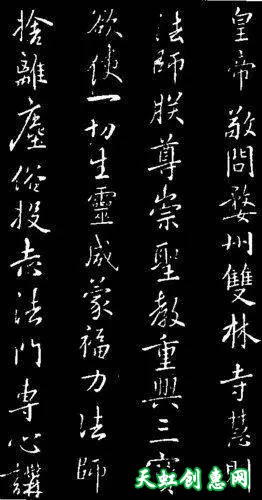 皇帝敬問婺州雙林寺慧明
法師朕尊崇聖教重興三寶
欲使一切生靈咸蒙福力法師
捨離塵俗投志法門專心講
天虹创意网